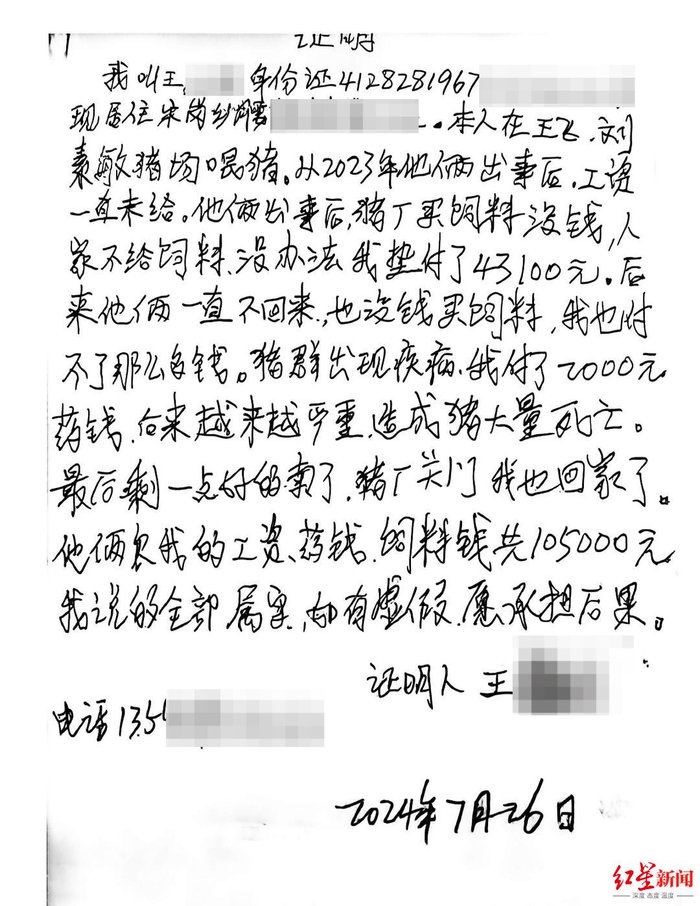 证明
我叫王 年份证4128281967
现居住宋岗乡 本人在王飞、刘
素敏猪场喂猪。从2023年他俩出事后.工资
一直未给。他俩出事后,猪厂买饲料没钱,人
家不给饲料、没办法我垫付了43100元。后
来他俩一直不回来.,也没钱买饲料,我也付
不了那么多钱。猪群出现疾病.我付了2000元
药钱、后来越来越严重、造成猪大量死亡。
最后剩一点好的卖了.猪厂关门我也回家了。
他俩欠我的工资、药钱、饲料钱共105000元
我说的全部属实,如有虚假.愿承担后果。
证明人 王
电话135
2024年7月26日
红星新闻
深度 态度 温度